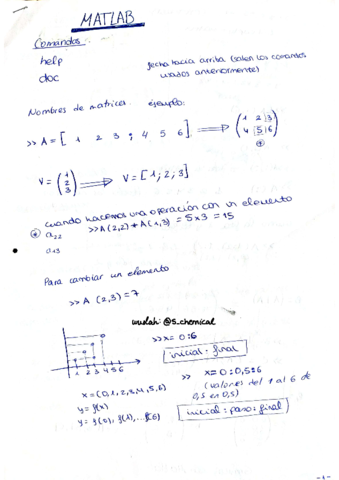 MATLAB
Comandos:
help
doc
flecha hacia arriba (salen los comandos
usados anteriormente)
Nombres de matrices ejemplo:
>> A = [ 1 2 3 ; 4 5 6 ] ⟹ ( 1 2 3
4 5 6 )
V = ( 1
2
3 ) ⟹ V = [1; 2; 3]
cuando hacemos una operación con un elemento
a22 >> A(2,2) * A(1,3) = 5x3 = 15
a13
Para cambiar un elemento
>> A (2,3) = 7
wuolah: @s_chemical
>> x= 0:6
inicial : final
1 2 3 4 5 6
>> x= 0:0,5:6
(valores del 1 al 6 de
0,5 en 0,5)
x = (0,1,2,3,4,5,6)
y = f(x)
y = f(0), f(1), ... f(6)
inicial : paso : final
-1-